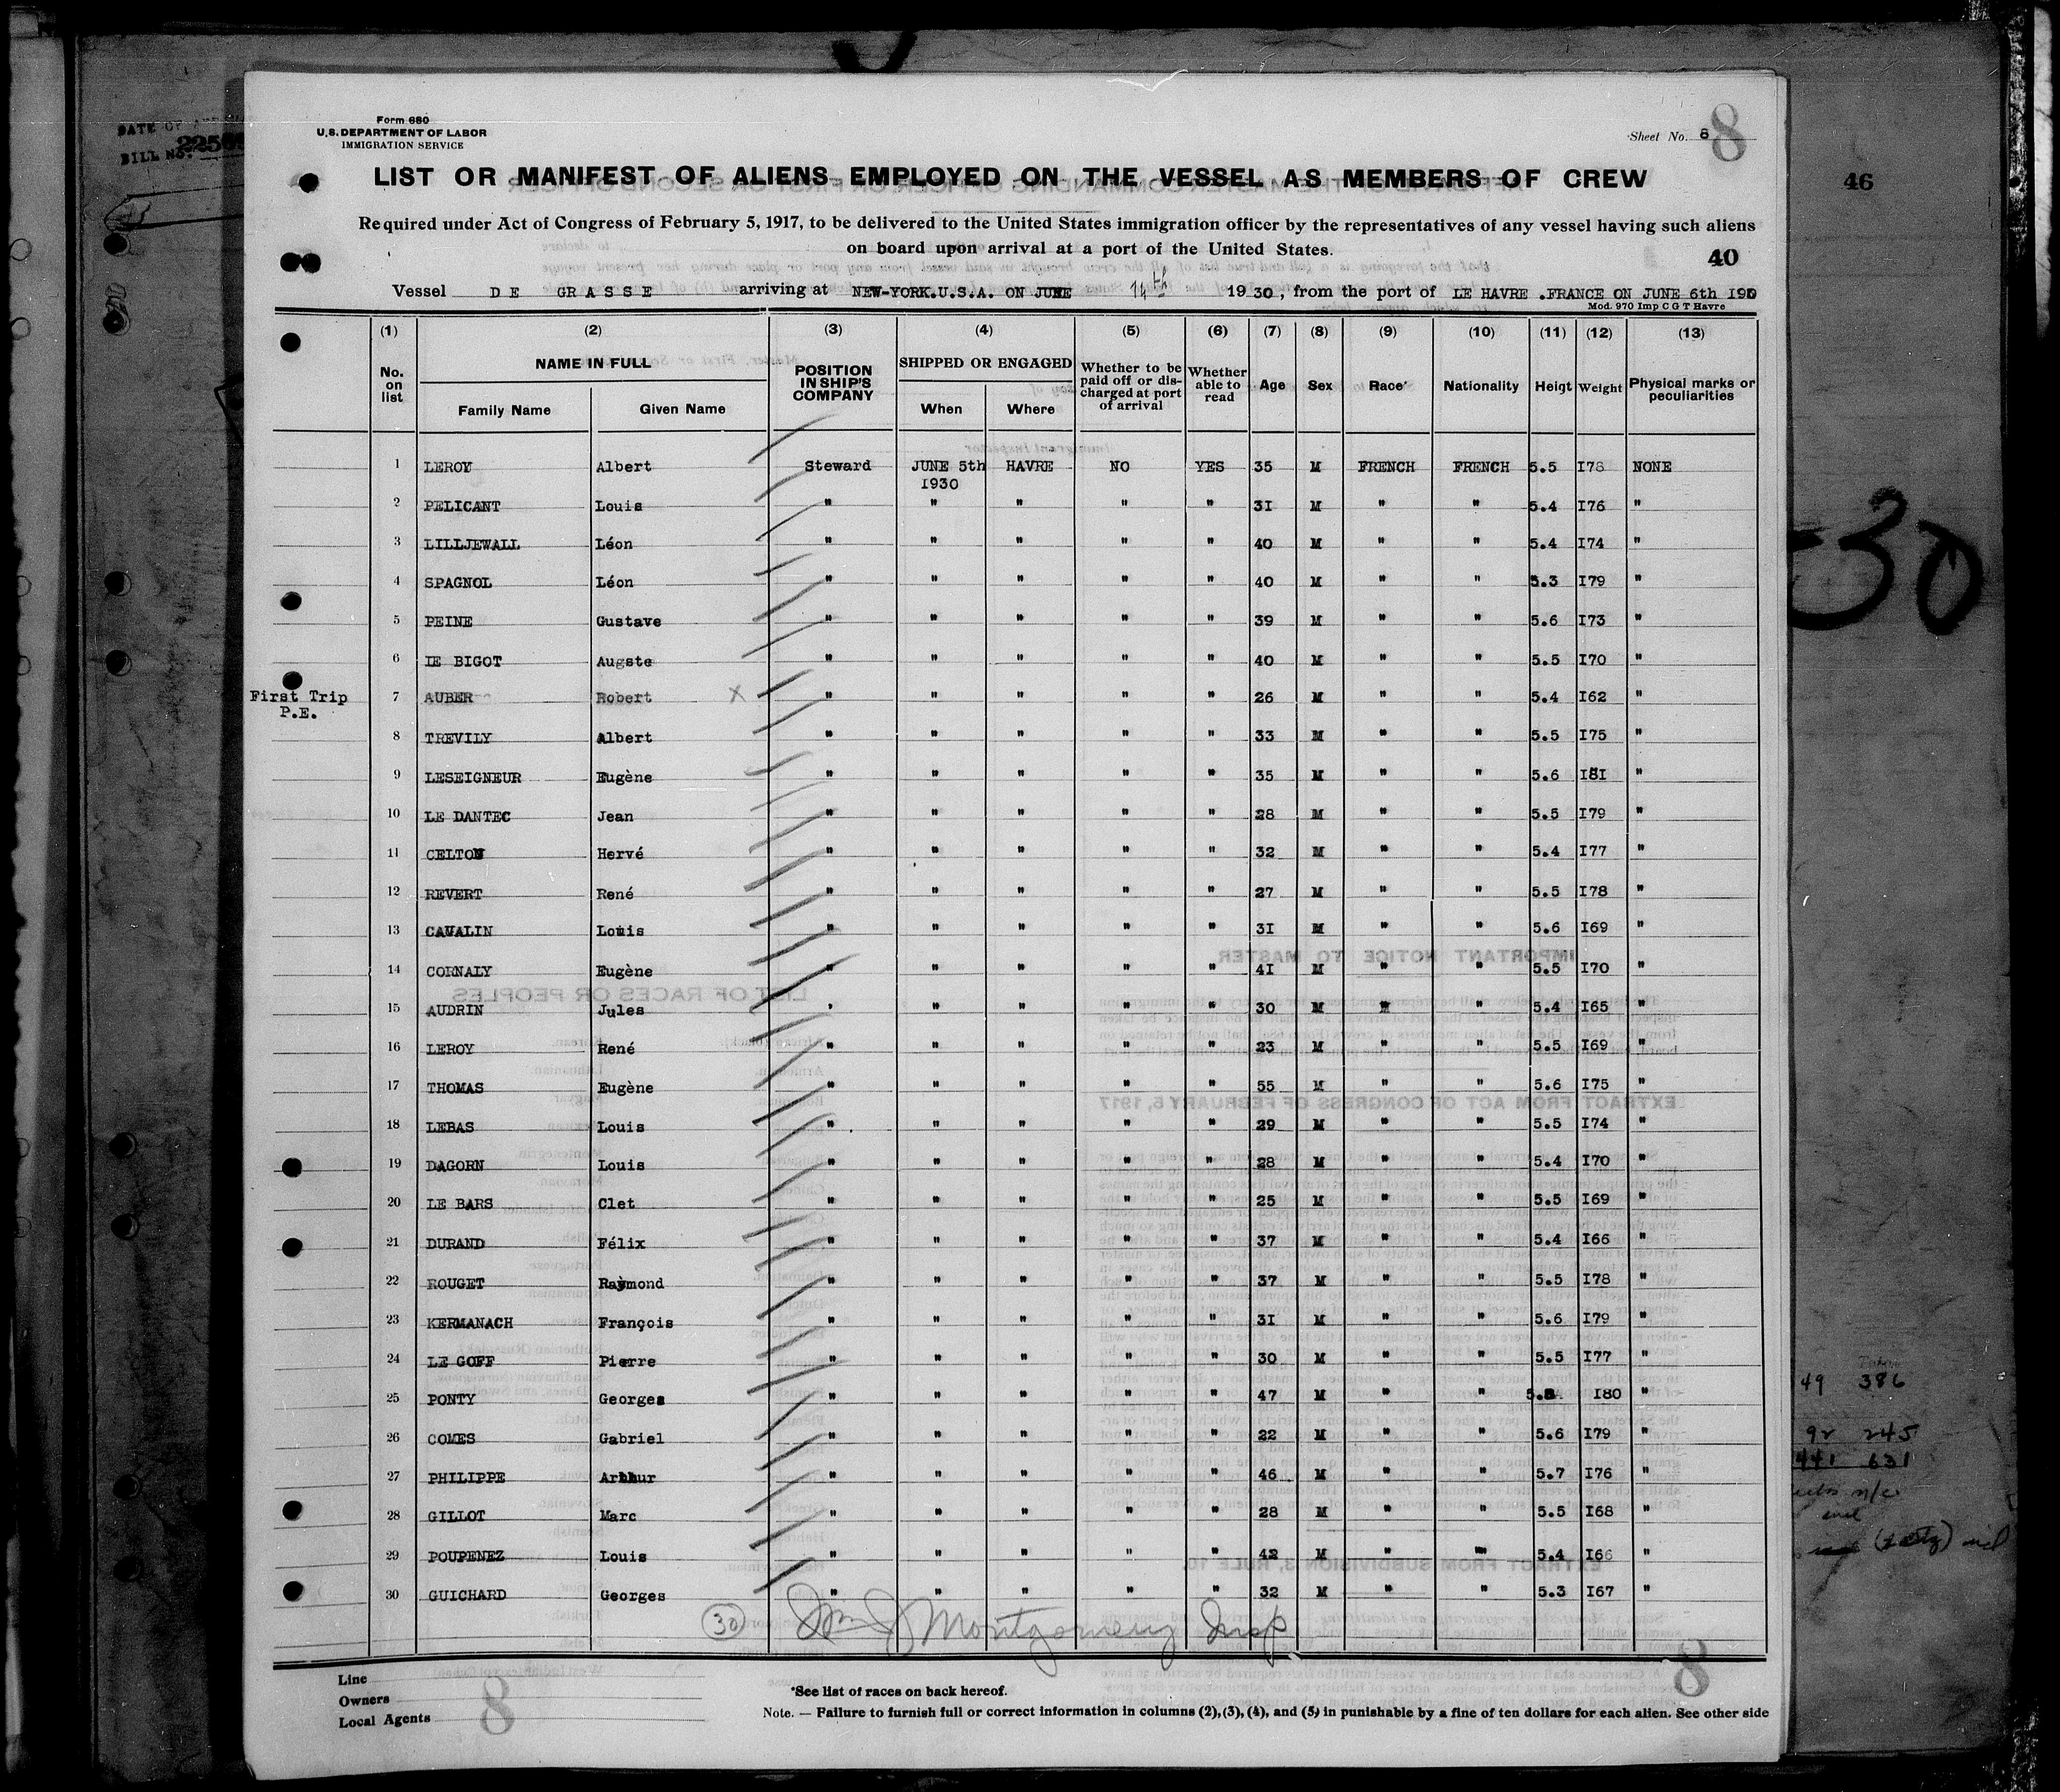 DATE OF
BILL NO. 2256
Form 680
U.S. DEPARTMENT OF LABOR
IMMIGRATION SERVICE
Sheet No. 8
8
LIST OR MANIFEST OF ALIENS EMPLOYED ON THE VESSEL AS MEMBERS OF CREW
46
Required under Act of Congress of February 5, 1917, to be delivered to the United States immigration officer by the representatives of any vessel having such aliens
on board upon arrival at a port of the United States.
40
Vessel DE GRASSE arriving at NEW-YORK.U.S.A. ON JUNE 14th 1930, from the port of LE HAVRE .FRANCE ON JUNE 6th
Mod. 970 Imp C G T Havre
(1) (2) (3) (4) (5) (6) (7) (8) (9) (10) (11) (12) (13)
No. on list NAME IN FULL Family Name Given Name POSITION IN SHIP'S COMPANY SHIPPED OR ENGAGED When Where Whether to be paid off or discharged at port of arrival Whether able to read Age Sex Race* Nationality Heigt Weight Physical marks or peculiarities
1 LEROY Albert Steward JUNE 5th HAVRE NO YES 35 M FRENCH FRENCH 5.5 I78 NONE
I930
2 PELICANT Louis " " " " " 3I M " " 5.4 I76 "
3 LILLJEWALL Léon " " " " " 40 M " " 5.4 I74 "
4 SPAGNOL Léon " " " " " 40 M " " 5.3 I79 "
5 PEINE Gustave " " " " " 39 M " " 5.6 I73 "
6 LE BIGOT Augste " " " " " 40 M " " 5.5 I70 "
First Trip 7 AUBER Robert X " " " " " 26 M " " 5.4 I62 "
P.E.
8 TREVILY Albert " " " " " 33 M " " 5.5 I75 "
9 LESEIGNEUR Eugène " " " " " 35 M " " 5.6 I8I "
10 LE DANTEC Jean " " " " " 28 M " " 5.5 I79 "
11 CELTON Hervé " " " " " 32 M " " 5.4 I77 "
12 REVERT René " " " " " 27 M " " 5.5 I78 "
13 CAVALIN Louis " " " " " 3I M " " 5.6 I69 "
14 CORNALY Eugène " " " " " 4I M " " 5.5 I70 "
15 AUDRIN Jules ' " " " " 30 M " " 5.4 I65 "
16 LEROY René " " " " " 23 M " " 5.5 I69 "
17 THOMAS Eugène " " " " " 55 M " " 5.6 I75 "
18 LEBAS Louis " " " " " 29 M " " 5.5 I74 "
19 DAGORN Louis " " " " " 28 M " " 5.4 I70 "
20 LE BARS Clet " " " " " 25 M " " 5.5 I69 "
21 DURAND Félix " " " " " 37 M " " 5.4 I66 "
22 ROUGET Raymond " " " " " 37 M " " 5.5 I78 "
23 KERMANACH François " " " " " 3I M " " 5.6 I79 "
24 LE GOFF Pierre " " " " " 30 M " " 5.5 I77 "
25 PONTY Georges " " " " " 47 M " " I80 "
26 COMES Gabriel " " " " " 22 M " " 5.6 I79 "
27 PHILIPPE Arthur " " " " " 46 M " " 5.7 I76 "
28 GILLOT Marc " " " " " 28 M " " 5.5 I68 "
29 POUPENEZ Louis " " " " " 42 M " " 5.4 I66 "
30 GUICHARD Georges " " " " " 32 M " " 5.3 I67 "
30 Wm J Montgomery Insp
Line
Owners
Local Agents
8
8
*See list of races on back hereof.
Note. — Failure to furnish full or correct information in columns (2), (3), (4), and (5) in punishable by a fine of ten dollars for each alien. See other side
30
49 386
92 245
441 631